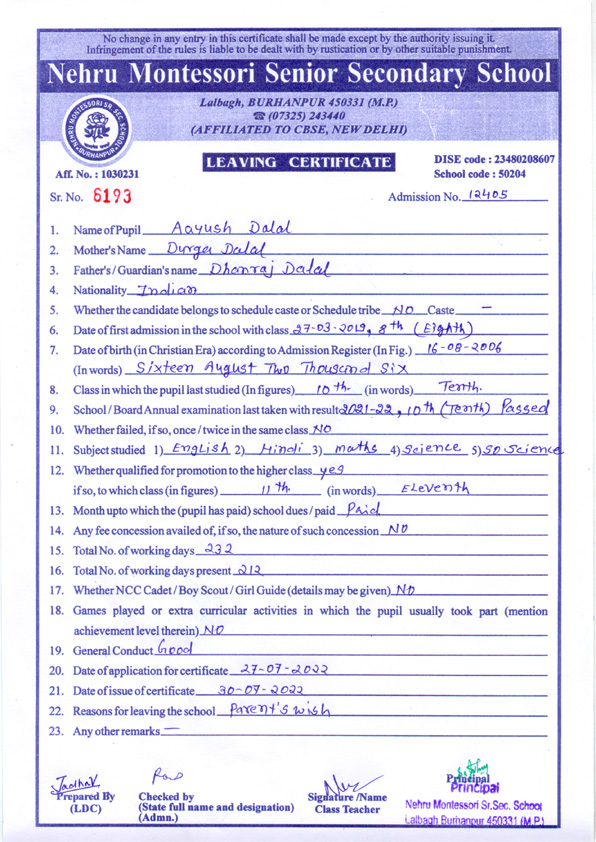 No change in any entry in this certificate shall be made except by the authority issuing it.
Infringement of the rules is liable to be dealt with by rustication or by other suitable punishment.
Nehru Montessori Senior Secondary School
Lalbagh, BURHANPUR 450331 (M.P.)
☎ (07325) 243440
(AFFILIATED TO CBSE, NEW DELHI)
NEHRU MONTESSORI SR. SEC. SCHOOL
BURHANPUR
LEAVING CERTIFICATE
DISE code : 23480208607
School code : 50204
Aff. No. : 1030231
Sr. No. 6193
Admission No. 12405
1. Name of Pupil Aayush Dalal
2. Mother's Name Durga Dalal
3. Father's / Guardian's name Dhanraj Dalal
4. Nationality Indian
5. Whether the candidate belongs to schedule caste or Schedule tribe NO Caste —
6. Date of first admission in the school with class 27-03-2019, 8th (Eighth)
7. Date of birth (in Christian Era) according to Admission Register (In Fig.) 16-08-2006
(In words) Sixteen August Two Thousand Six
8. Class in which the pupil last studied (In figures) 10th. (in words) Tenth.
9. School / Board Annual examination last taken with result 2021-22, 10th (Tenth) Passed
10. Whether failed, if so, once / twice in the same class NO
11. Subject studied 1) English 2) Hindi 3) maths 4) Science 5) SO Science
12. Whether qualified for promotion to the higher class yes
if so, to which class (in figures) 11th. (in words) Eleventh
13. Month upto which the (pupil has paid) school dues / paid Paid
14. Any fee concession availed of, if so, the nature of such concession NO
15. Total No. of working days 232
16. Total No. of working days present 212
17. Whether NCC Cadet / Boy Scout / Girl Guide (details may be given) NO
18. Games played or extra curricular activities in which the pupil usually took part (mention
achievement level therein) NO
19. General Conduct Good
20. Date of application for certificate 27-07-2022
21. Date of issue of certificate 30-07-2022
22. Reasons for leaving the school Parent's wish
23. Any other remarks —
Jadhav
Prepared By
(LDC)
Checked by
(State full name and designation)
(Admn.)
Signature /Name
Class Teacher
Principal
Principal
Nehru Montessori Sr.Sec. School
Lalbagh Burhanpur 450331 (M.P.)